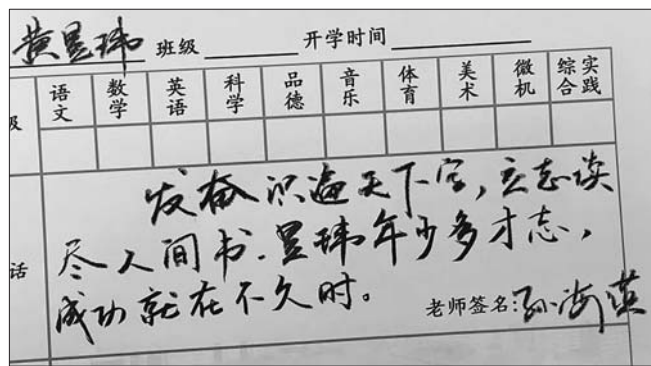 黄昱玮 班级 开学时间
级 语文 数学 英语 科学 品德 音乐 体育 美术 微机 综合实践
发奋识遍天下字，立志读
尽人间书.昱玮年少多才志，
话
成功就在不久时。
老师签名:孙海英